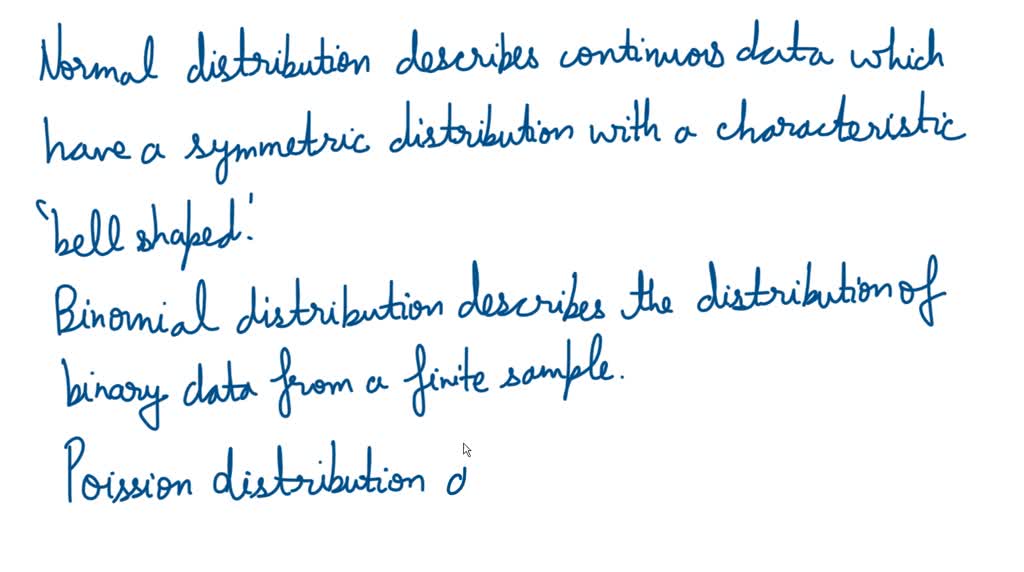 Normal distribution describes continuous data which
have a symmetric distribution with a characteristic
'bell shaped.'
Binomial distribution describes the distribution of
binary data from a finite sample.
Poission distribution d